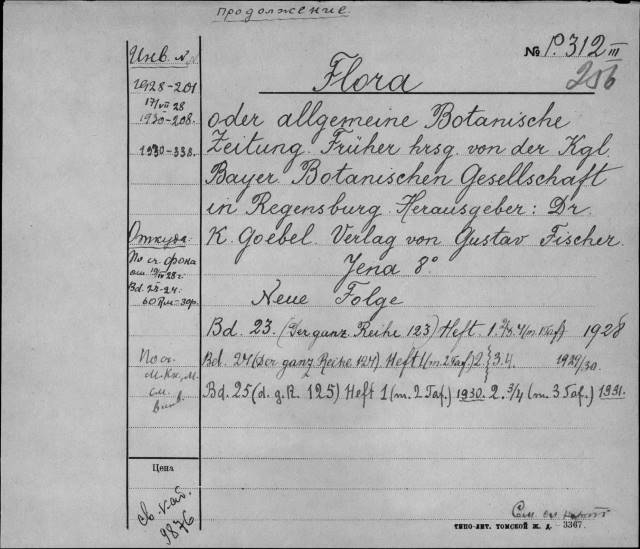 продолжение
№ P. 312 III
256
Инв. №
1928-201
17/VII 28
1930-208.
1930-338.
Flora
oder allgemeine Botanische
Zeitung. Früher hrsg. von der Kgl.
Bayer Botanischen Gesellschaft
in Regensburg. Herausgeber: Dr.
K. Goebel. Verlag von Gustav Fischer.
Jena 8°
Neue Folge
Откуда:
По сч. фока
Bd. 23-24.
60 Rm=30р.
Bd. 23. (Der ganz. Reihe 123) Heft 1. 2/3. 4 (m. 1 Taf.) 1928
Bd. 24 (Der ganz. Reihe 124) Heft 1 (m. 2 Taf.) 2. 3. 4. 1929/30.
Bd. 25 (d. g. R. 125) Heft 1 (m. 2 Taf.) 1930. 2. 3/4 (m. 3 Taf.) 1931.
По сч.
М.Кн.
см.
Цена
9876
См. сл.
ТИПО-ЛИТ. ТОМСКОЙ Ж. Д. 3367.